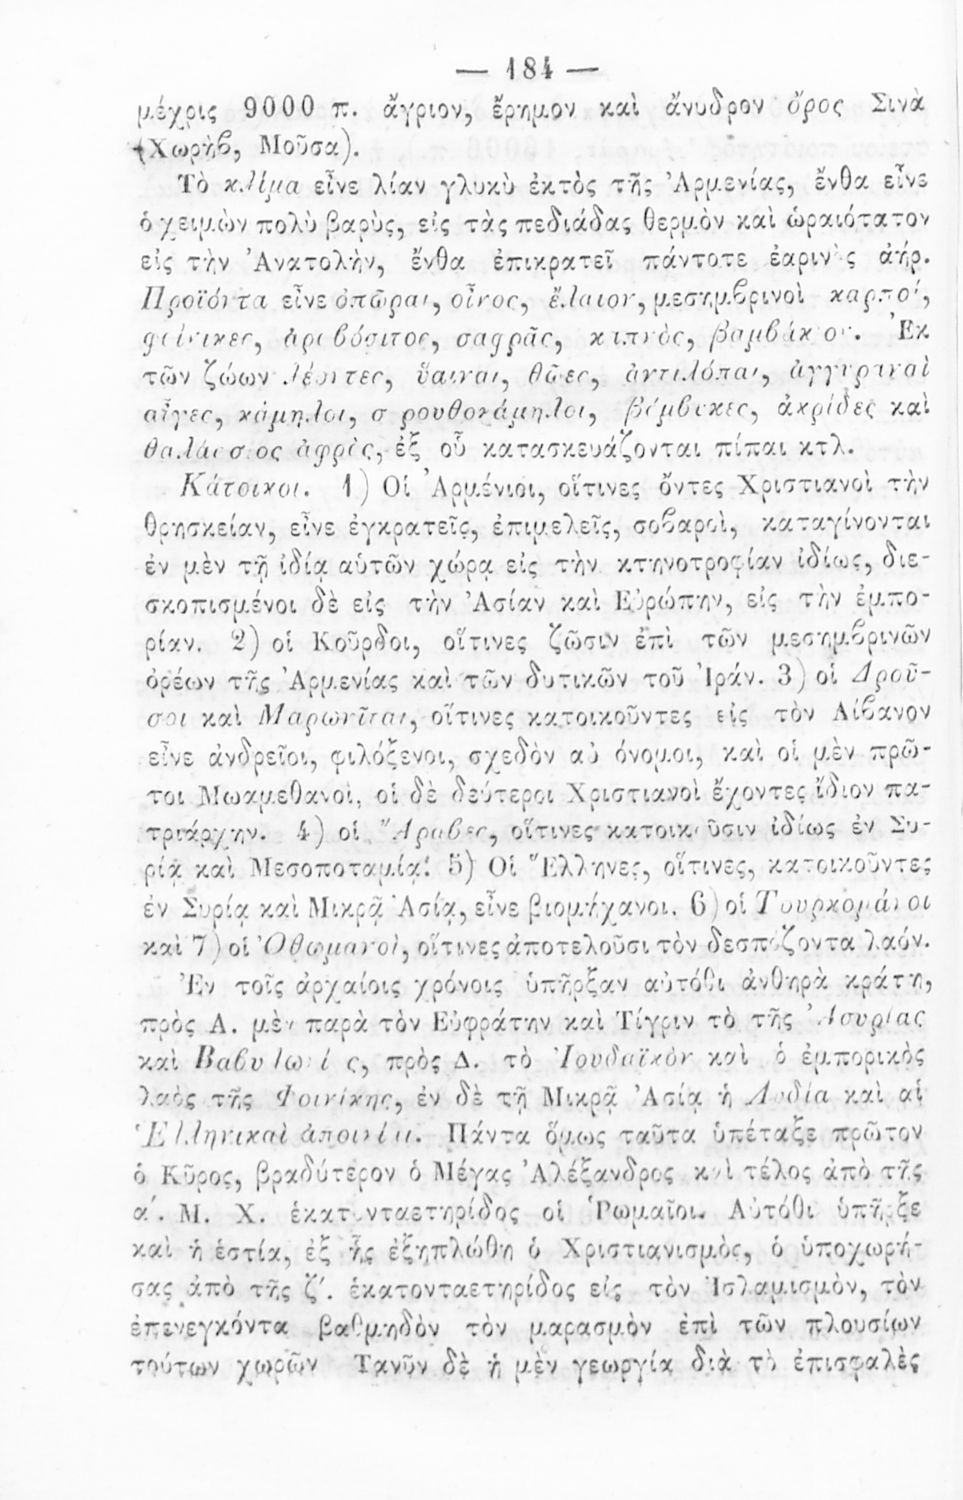 — 184 —
μέχρις 9000 π. ἄγριον, ἔρημον καὶ ἄνυδρον ὄρος Σινᾶ
(Χωρὴβ, Μοῦσα).
Τὸ κλῖμα εἶνε λίαν γλυκὺ ἐκτὸς τῆς Ἀρμενίας, ἔνθα εἶνε
ὁ χειμὼν πολὺ βαρὺς, εἰς τὰς πεδιάδας θερμὸν καὶ ὡραιότατον
εἰς τὴν Ἀνατολὴν, ἔνθα ἐπικρατεῖ πάντοτε ἐαρινὸς ἀήρ.
Προϊόντα εἶνε ὀπῶραι, οἶνος, ἔλαιον, μεσημβρινοὶ καρποὶ,
φοίνικες, ἀραβόσιτος, σαφρᾶς, καπνὸς, βαμβάκιον. Ἐκ
τῶν ζώων λέοντες, ὕαιναι, θῶες, ἀντιλόπαι, ἀγγυριναὶ
αἶγες, κάμηλοι, στρουθοκάμηλοι, βόμβυκες, ἀκρίδες καὶ
θαλάσσιος ἀφρὸς, ἐξ οὗ κατασκευάζονται πίπαι κτλ.
Κάτοικοι. 1) Οἱ Ἀρμένιοι, οἵτινες ὄντες Χριστιανοὶ τὴν
θρησκείαν, εἶνε ἐγκρατεῖς, ἐπιμελεῖς, σοβαροὶ, καταγίνονται
ἐν μὲν τῇ ἰδίᾳ αὐτῶν χώρᾳ εἰς τὴν κτηνοτροφίαν ἰδίως, διε-
σκοπισμένοι δὲ εἰς τὴν Ἀσίαν καὶ Εὐρώπην, εἰς τὴν ἐμπο-
ρίαν. 2) οἱ Κοῦρδοι, οἵτινες ζῶσιν ἐπὶ τῶν μεσημβρινῶν
ὀρέων τῆς Ἀρμενίας καὶ τῶν δυτικῶν τοῦ Ἰράν. 3) οἱ Δροῦ-
σοι καὶ Μαρωνῖται, οἵτινες κατοικοῦντες εἰς τὸν Λίβανον
εἶνε ἀνδρεῖοι, φιλόξενοι, σχεδὸν αὐτόνομοι, καὶ οἱ μὲν πρῶ-
τοι Μωαμεθανοὶ, οἱ δὲ δεύτεροι Χριστιανοὶ ἔχοντες ἴδιον πα-
τριάρχην. 4) οἱ Ἄραβες, οἵτινες κατοικοῦσιν ἰδίως ἐν Συ-
ρίᾳ καὶ Μεσοποταμίᾳ. 5) Οἱ Ἕλληνες, οἵτινες, κατοικοῦντες
ἐν Συρίᾳ καὶ Μικρᾷ Ἀσίᾳ, εἶνε βιομήχανοι. 6) οἱ Τουρκομάνοι
καὶ 7) οἱ Ὀθωμανοὶ, οἵτινες ἀποτελοῦσι τὸν δεσπόζοντα λαόν.
Ἐν τοῖς ἀρχαίοις χρόνοις ὑπῆρξαν αὐτόθι ἀνθηρὰ κράτη,
πρὸς Α. μὲν παρὰ τὸν Εὐφράτην καὶ Τίγριν τὸ τῆς Ἀσυρίας
καὶ Βαβυλωνίας, πρὸς Δ. τὸ Ἰουδαϊκὸν καὶ ὁ ἐμπορικὸς
λαὸς τῆς Φοινίκης, ἐν δὲ τῇ Μικρᾷ Ἀσίᾳ ἡ Λυδία καὶ αἱ
Ἑλληνικαὶ ἀποικίαι. Πάντα ὅμως ταῦτα ὑπέταξε πρῶτον
ὁ Κῦρος, βραδύτερον ὁ Μέγας Ἀλέξανδρος καὶ τέλος ἀπὸ τῆς
α΄. Μ. Χ. ἑκατονταετηρίδος οἱ Ῥωμαῖοι. Αὐτόθι ὑπῆρξε
καὶ ἡ ἑστία, ἐξ ἧς ἐξηπλώθη ὁ Χριστιανισμὸς, ὁ ὑποχωρή-
σας ἀπὸ τῆς ζ΄. ἑκατονταετηρίδος εἰς τὸν Ἰσλαμισμὸν, τὸν
ἐπενεγκόντα βαθμηδὸν τὸν μαρασμὸν ἐπὶ τῶν πλουσίων
τούτων χωρῶν Τανῦν δὲ ἡ μὲν γεωργία διὰ τὸ ἐπισφαλὲς